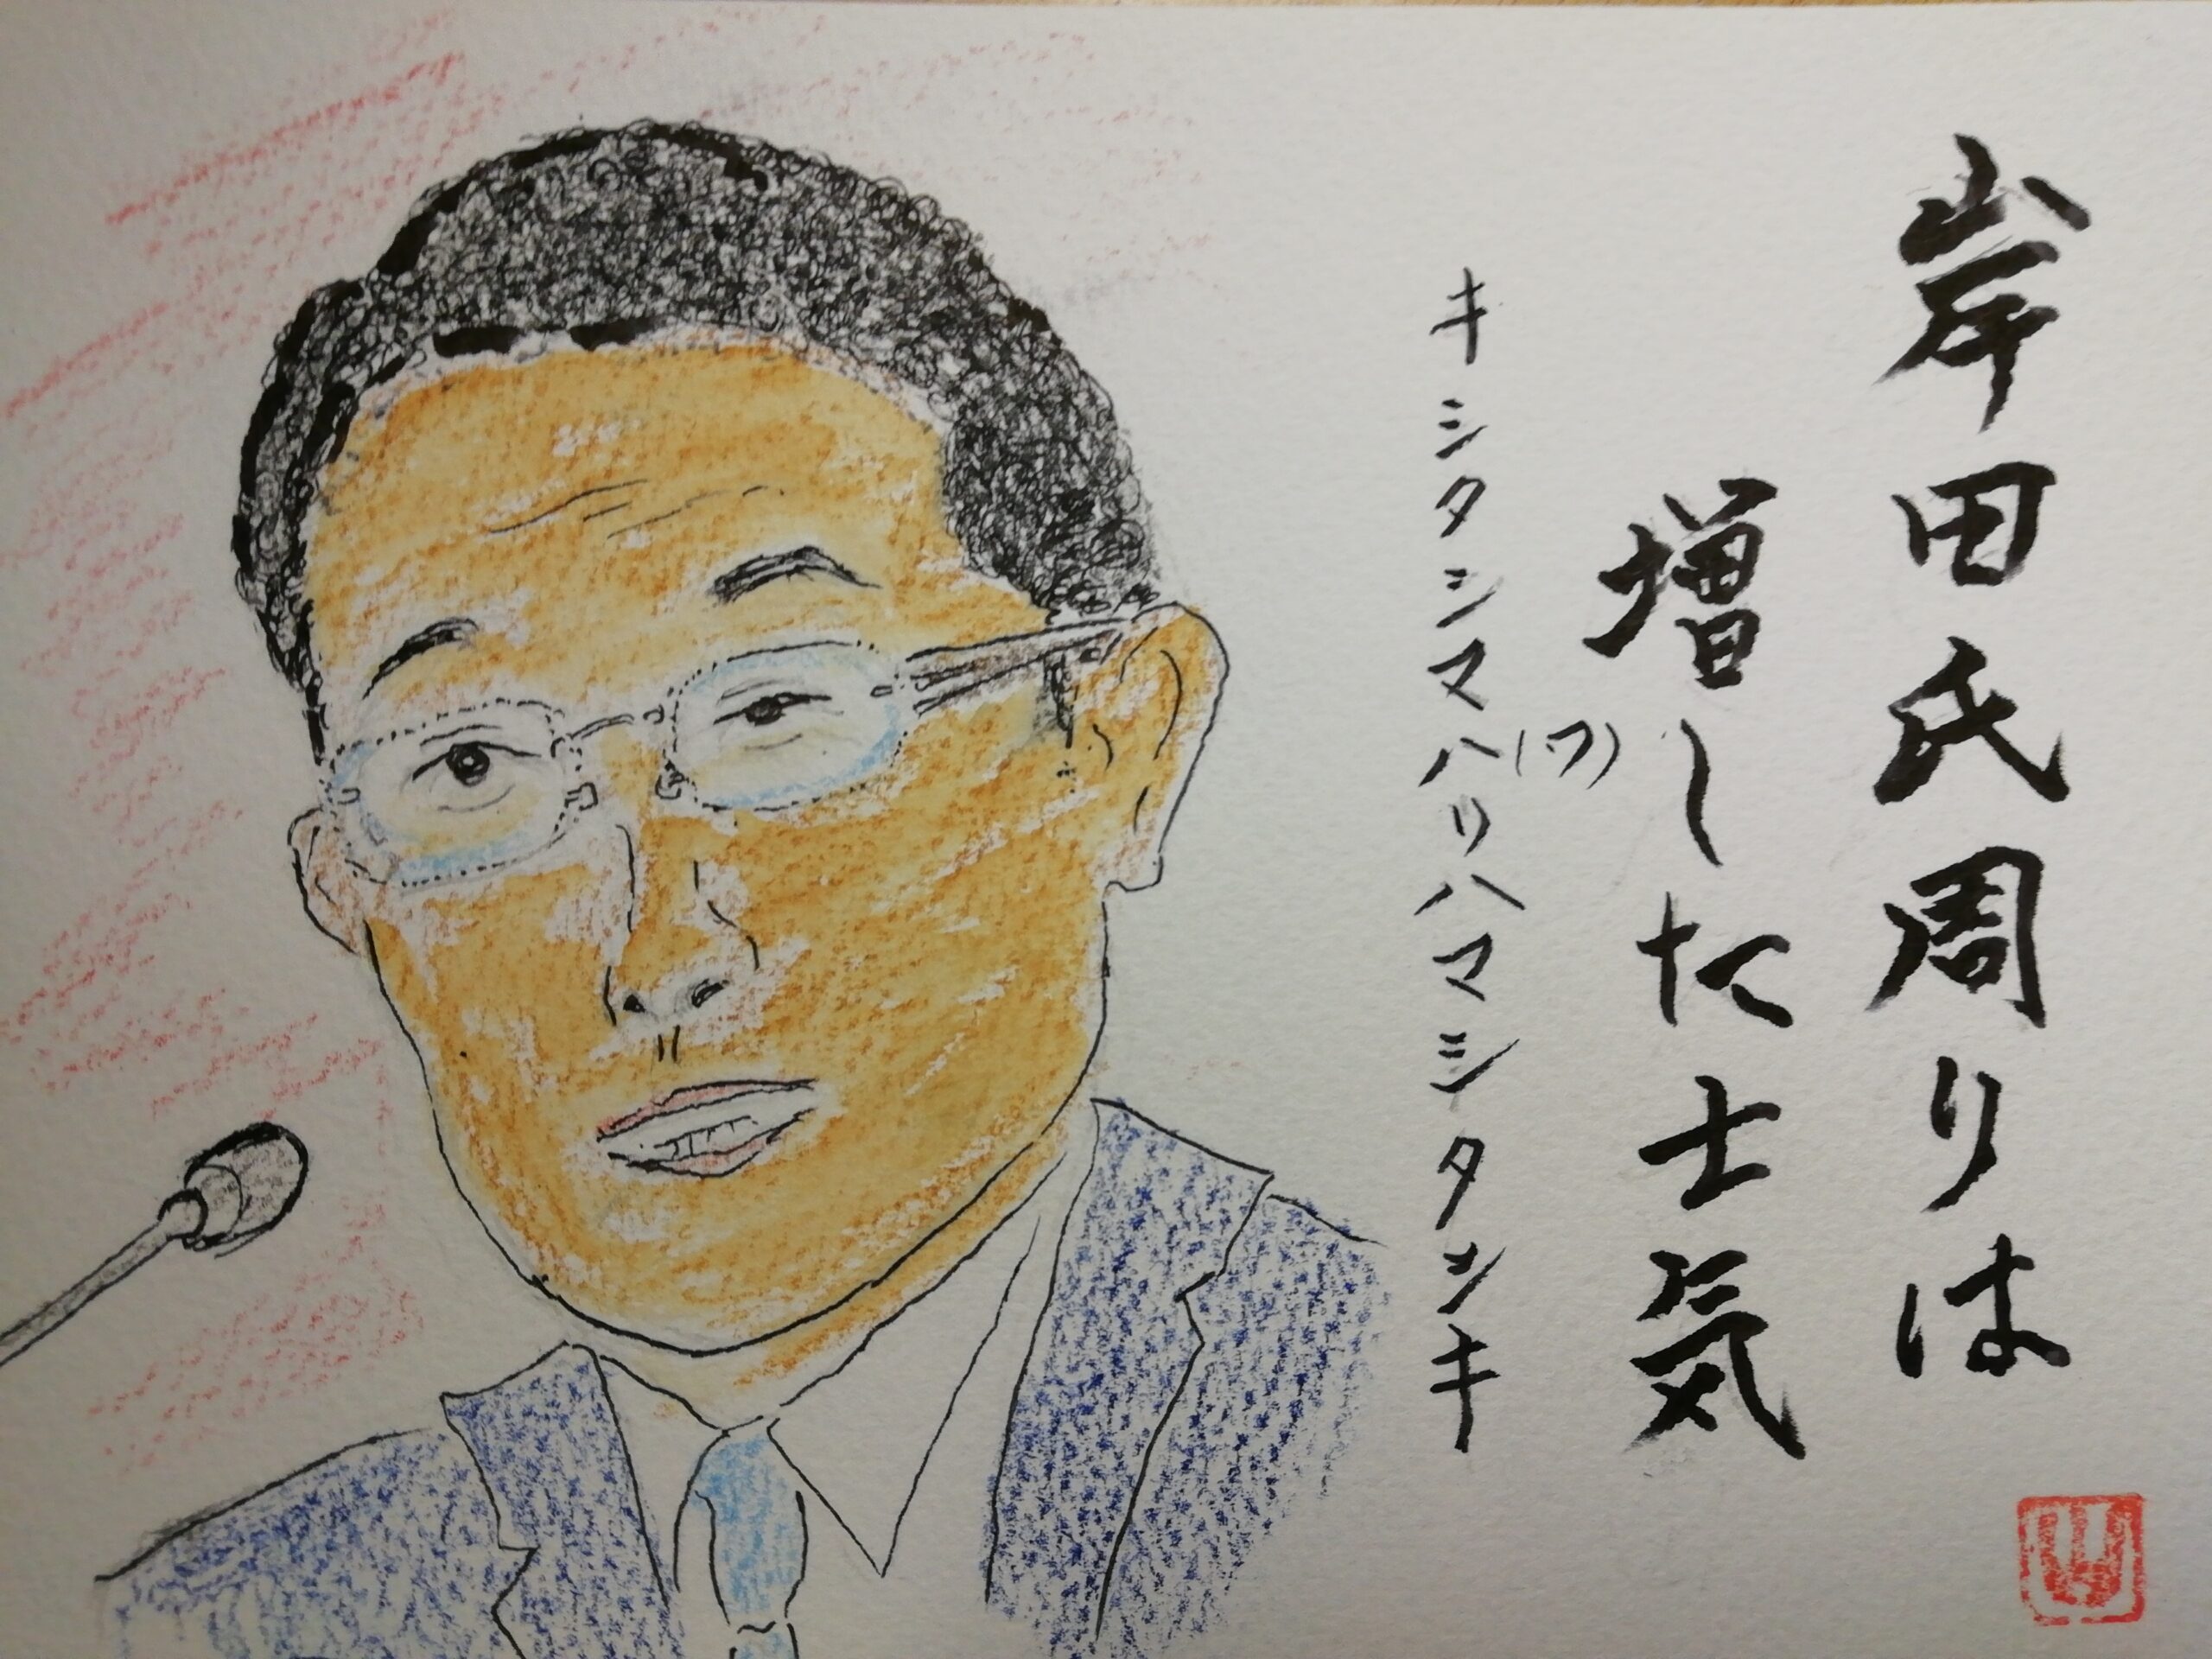 岸田氏周りは
増した士気
キシタシマハ(ワ)リハマシタシキ